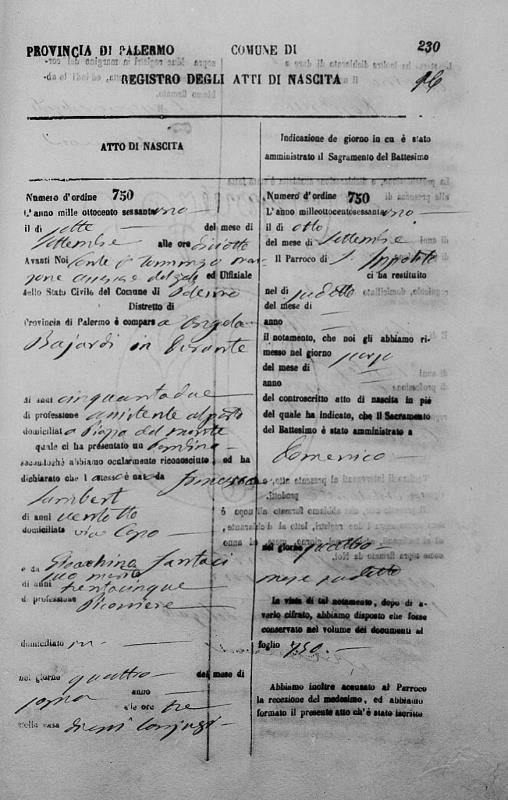 PROVINCIA DI PALERMO COMUNE DI 230
REGISTRO DEGLI ATTI DI NASCITA
ATTO DI NASCITA
Numero d'ordine 750
L'anno mille ottocento sessantuno
il dì sette del mese di
Settembre alle ore diciotto
Avanti Noi Conte
ed Uffiziale
dello Stato Civile del Comune di Palermo
Distretto di
Provincia di Palermo è comparsa Angela
Bajardi in
di anni cinquantadue
di professione assistente al parto
domiciliata Piazza del monte
quale ci ha presentato un bambino
secondochè abbiamo ocularmente riconosciuto ed ha
dichiarato che l stesso è nato da Francesca
Lambert
di anni ventotto
domiciliata via Capo
e da Gioachino Fantaci
suo marito
di anni trentacinque
di professione
domiciliato ivi
nel giorno quattro del mese di
anno
alle ore tre
nella casa di essi coniugi
Indicazione de giorno in cu è stato
amministrato il Sagramento del Battesimo
Numero d'ordine 750
L'anno milleottocentosessantuno
il dì otto
del mese di Settembre
Il Parroco di S. Ippolito
ci ha restituito
nel dì sudetto
del mese di
anno
il notamento, che noi gli abbiamo ri-
messo nel giorno
del mese di
anno
del controscritto atto di nascita in piè
del quale ha indicato, che il Sacramento
del Battesimo è stato amministrato a
Domenico
nel giorno quattro
mese sudetto
In vista di tal notamento, dopo di a-
verlo cifrato, abbiamo disposto che fosse
conservato nel volume dei documenti al
foglio 750.
Abbiamo inoltre accusato al Parroco
la recezione del medesimo, ed abbiamo
formato il presente atto ch'è stato iscritto